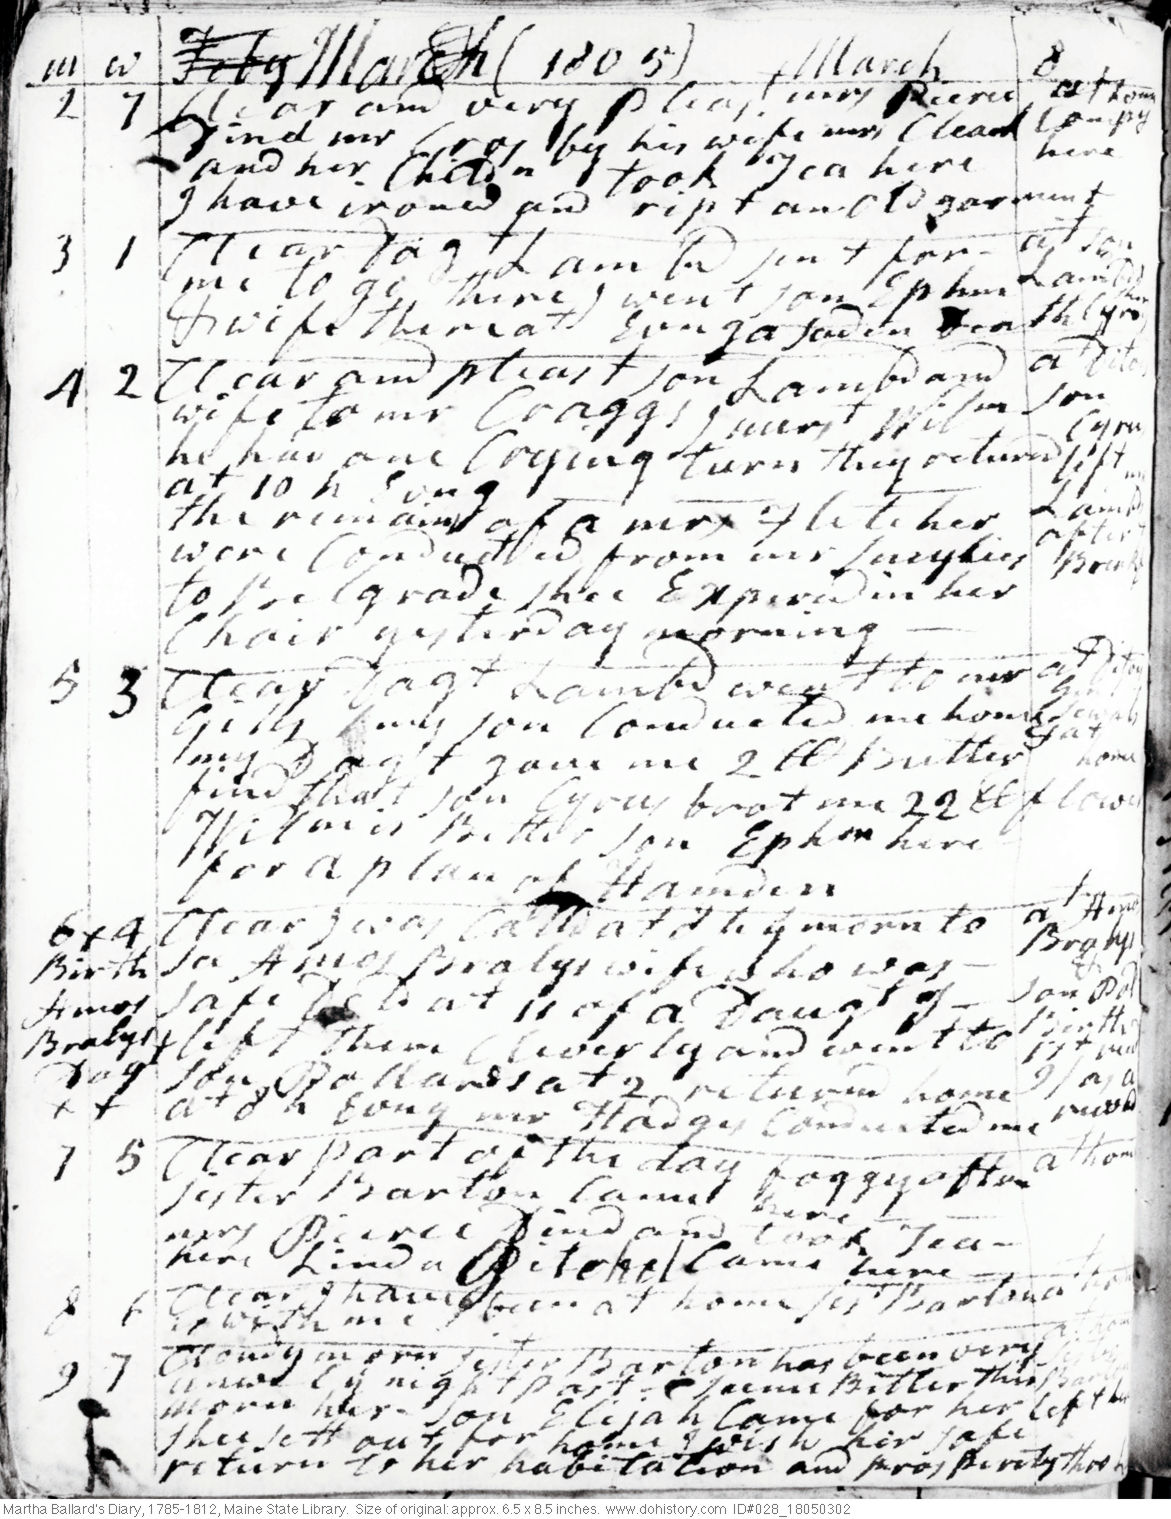 m w Feby March (1805) March 8
2 7 Clear and very pleast mrs Pierce at home
Dind mr Cros by his wife mrs Clark Compy
and her Childn took Tea here here
I have ironed and ript an old garment
3 1 Clear Dagt Lambd sent for at son
me to go there I went son Ephm Lambds
& wife there at Evng a
4 2 Clear and pleast son Lambd and at Ditos
wife to mr Craggs I nurst Wilm son
he had one Crying turn they returnd Cyrus left
at 10 h Evng
the remains of a mrs Fletcher Lambds
were Conducted from mr Smylies after
to Belgrade shee Expered in her Breakf
Chair yesterday morning
5 3 Clear Dagt Lambd went to mr at Ditos
Gills my son Conducted me home
my Dagt gave me 2 lb Butter at home
find that son Cyrus brot me 22 lb flower
Wilm is Better son Ephm here
for a plan of Hamden
6 x 4 Clear I was Calld at 8 h morn to at Amos
Birth se Amos Bralys wife who was Bralys
Amos safe Delivd at 11 of a Daugt I son Pol
Bralys left them Cleverly and went to Birth
Dag son Pollards at 2 returnd home
x x at 8 h Evng mr Hodges Conducted me receivd
7 5 Clear part of the day foggy aftrn at home
sister Barton Came here
mrs Pierce Dind and took Tea
here Linda Pitchel Came here
8 6 Clear I have been at home sisr Barton at home
is with me
9 7 Cloudy morn sister Barton has been very at home
unwel by night past Seems Bitter this
morn her son Elijah Came for her left her
shee sett out for home I wish her safe
return to her habitation and prosperity thro
Martha Ballard's Diary, 1785-1812, Maine State Library. Size of original: approx. 6.5 x 8.5 inches. www.dohistory.com ID#028_18050302